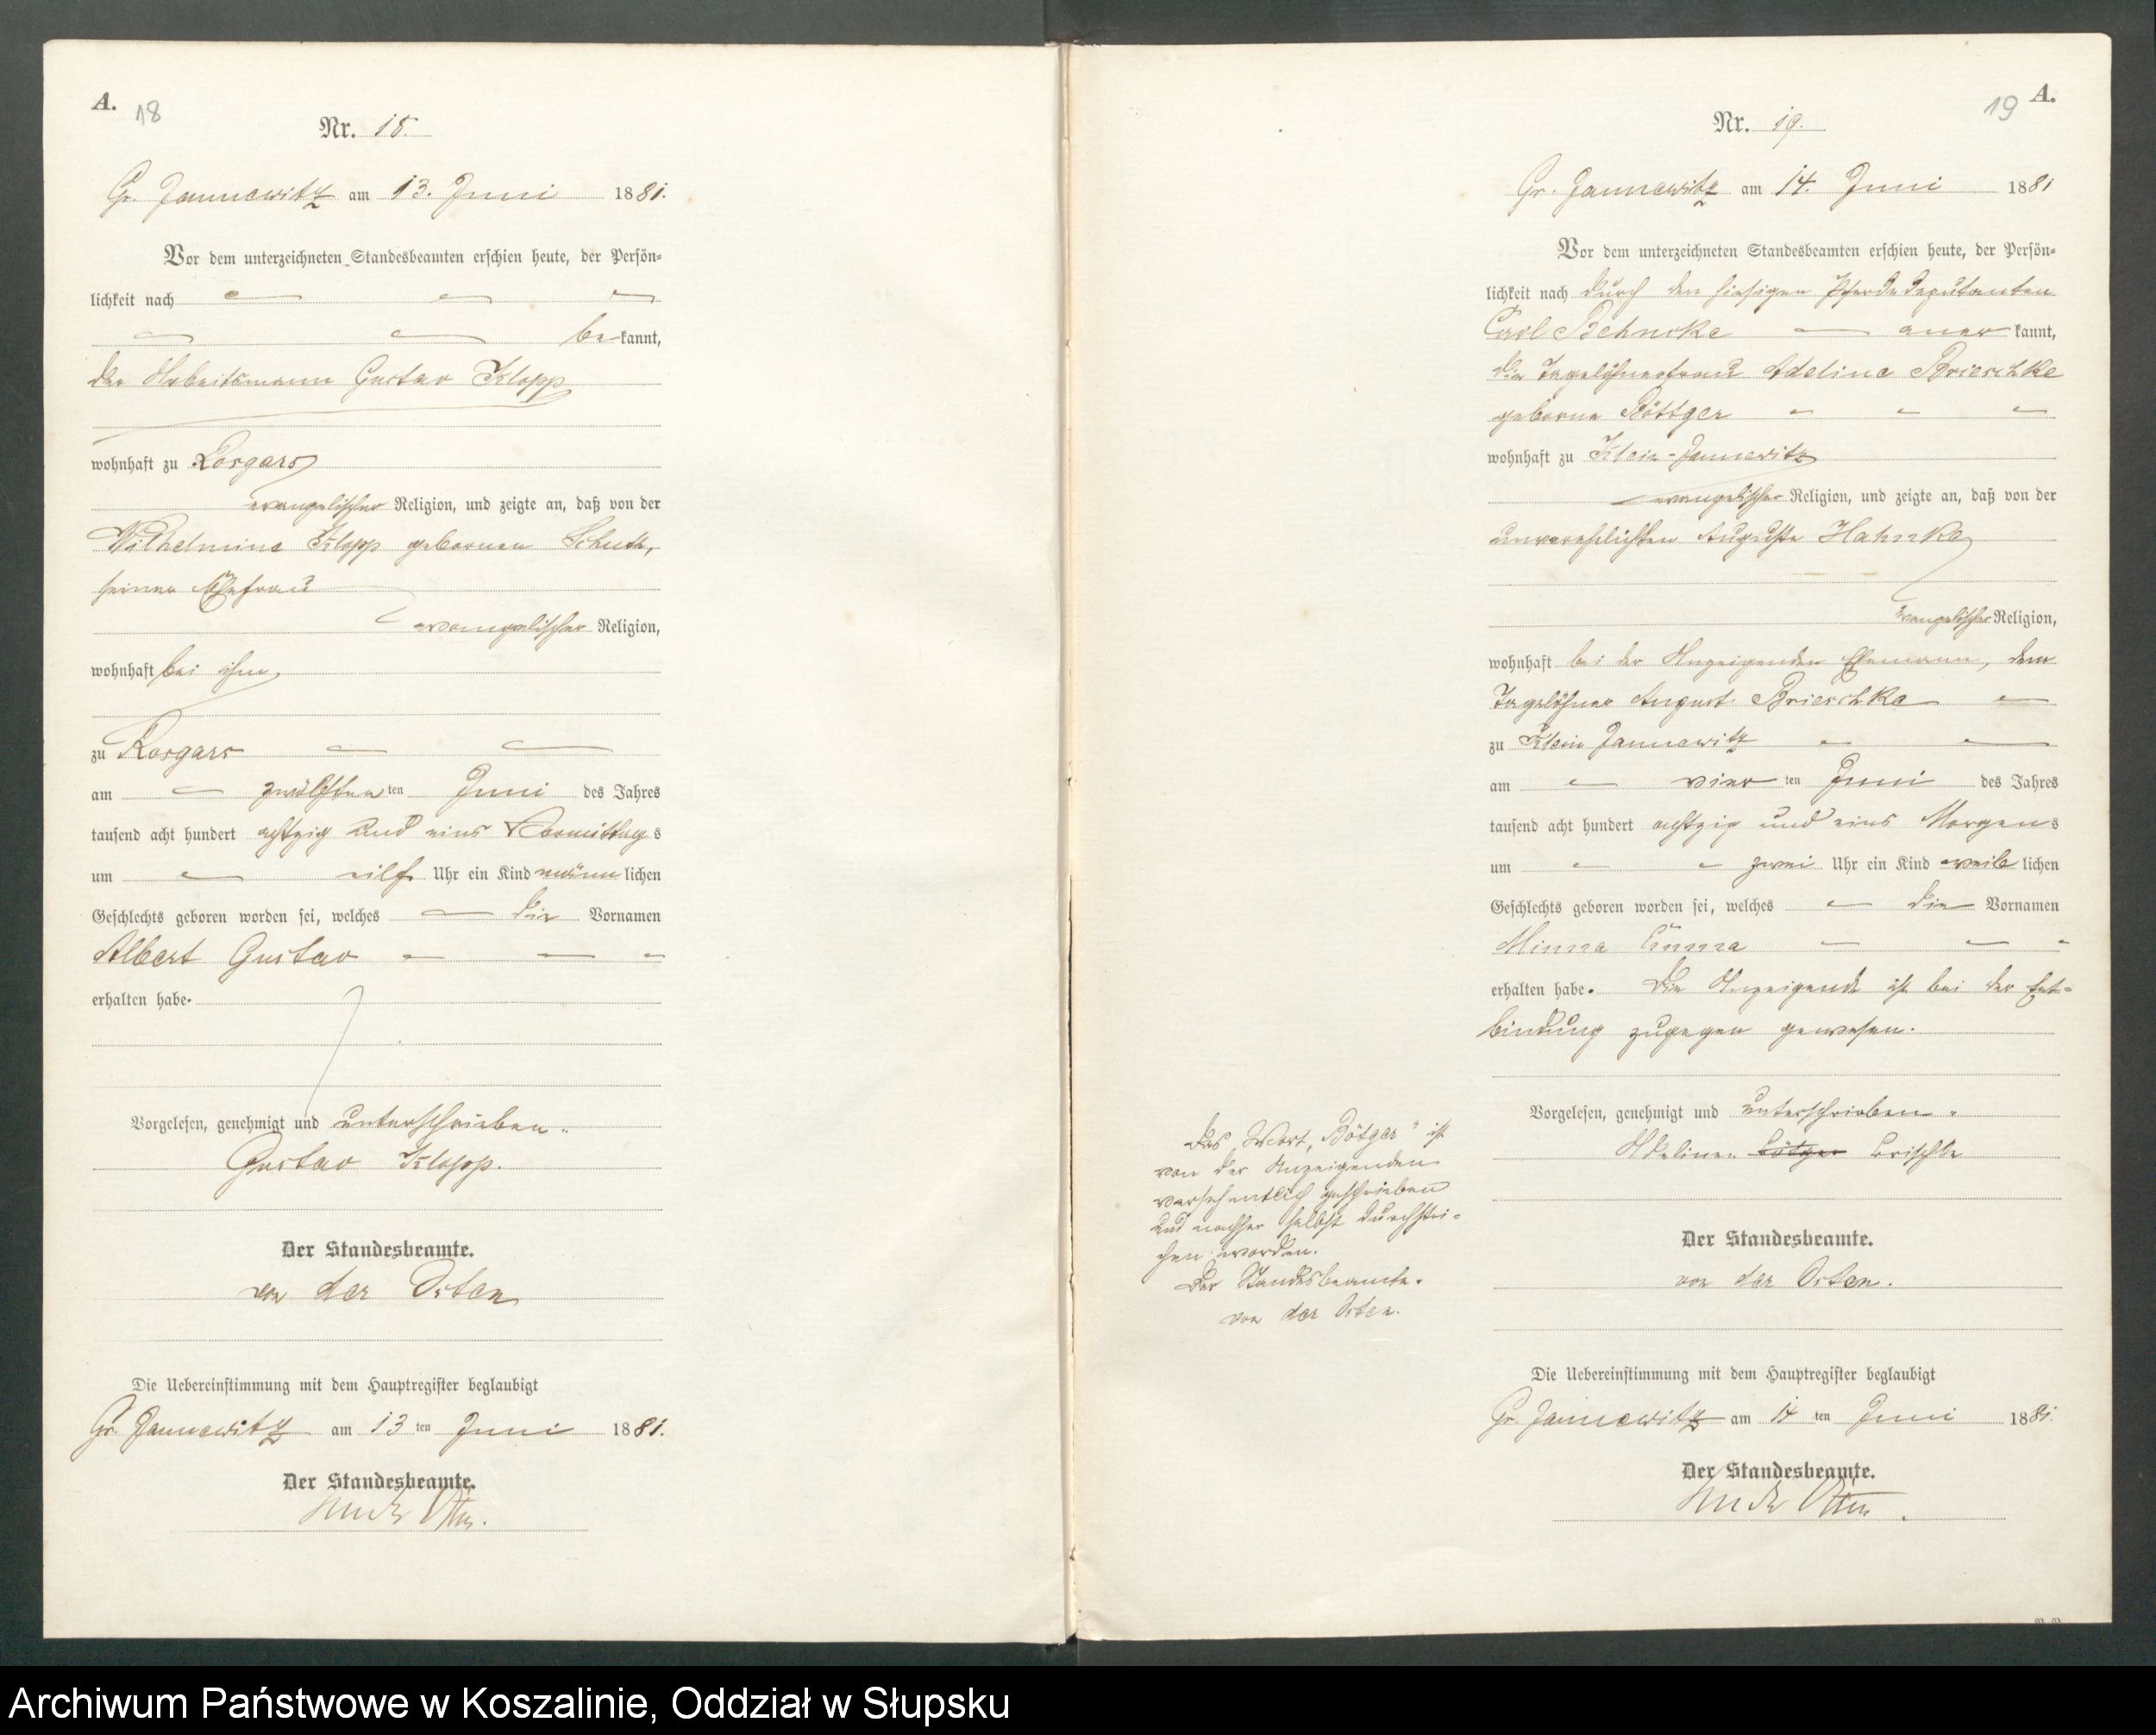 A.
18
Nr. 18.
Gr. Jannewitz am 13. Juni 1881.
Vor dem unterzeichneten Standesbeamten erschien heute, der Persön-
lichkeit nach
bekannt,
der Arbeitsmann Gustav Klopp
wohnhaft zu Rosgars
evangelischer Religion, und zeigte an, daß von der
Wilhelmine Klopp gebornen
seiner Ehefrau
evangelischer Religion,
wohnhaft bei ihm
zu Rosgars
am zwölften ten Juni des Jahres
tausend acht hundert achtzig und eins Vormittags
um eilf Uhr ein Kind männlichen
Geschlechts geboren worden sei, welches die Vornamen
Albert Gustav
erhalten habe.
Vorgelesen, genehmigt und unterschrieben.
Gustav Klopp.
Der Standesbeamte.
von der Osten
Die Uebereinstimmung mit dem Hauptregister beglaubigt
Gr. Jannewitz am 13 ten Juni 1881.
Der Standesbeamte.
von der Osten.
19
A.
Nr. 19.
Gr. Jannewitz am 14. Juni 1881
Vor dem unterzeichneten Standesbeamten erschien heute, der Persön-
lichkeit nach durch den hiesigen Pferdedeputanten
Carl Behncke anerkannt,
die Tagelöhnerfrau Adeline Brieschke
geborne Böttger
wohnhaft zu Klein-Jannewitz
evangelischer Religion, und zeigte an, daß von der
unverehelichten Auguste Hahnke
evangelischer Religion,
wohnhaft bei der Anzeigenden Ehemann, dem
Tagelöhner August Brieschke
zu Klein Jannewitz
am vier ten Juni des Jahres
tausend acht hundert achtzig und eins Morgens
um zwei Uhr ein Kind weiblichen
Geschlechts geboren worden sei, welches die Vornamen
Minna Emma
erhalten habe. Die Anzeigende ist bei der Ent-
bindung zugegen gewesen.
Vorgelesen, genehmigt und unterschrieben.
Adeline Bötger Brischke
Das Wort „Bötger" ist
von der Anzeigenden
versehentlich geschrieben
und nachher selbst durchstri-
chen worden.
Der Standesbeamte.
von der Osten.
Der Standesbeamte.
von der Osten.
Die Uebereinstimmung mit dem Hauptregister beglaubigt
Gr. Jannewitz am 14 ten Juni 1881.
Der Standesbeamte.
von der Osten.
Archiwum Państwowe w Koszalinie, Oddział w Słupsku